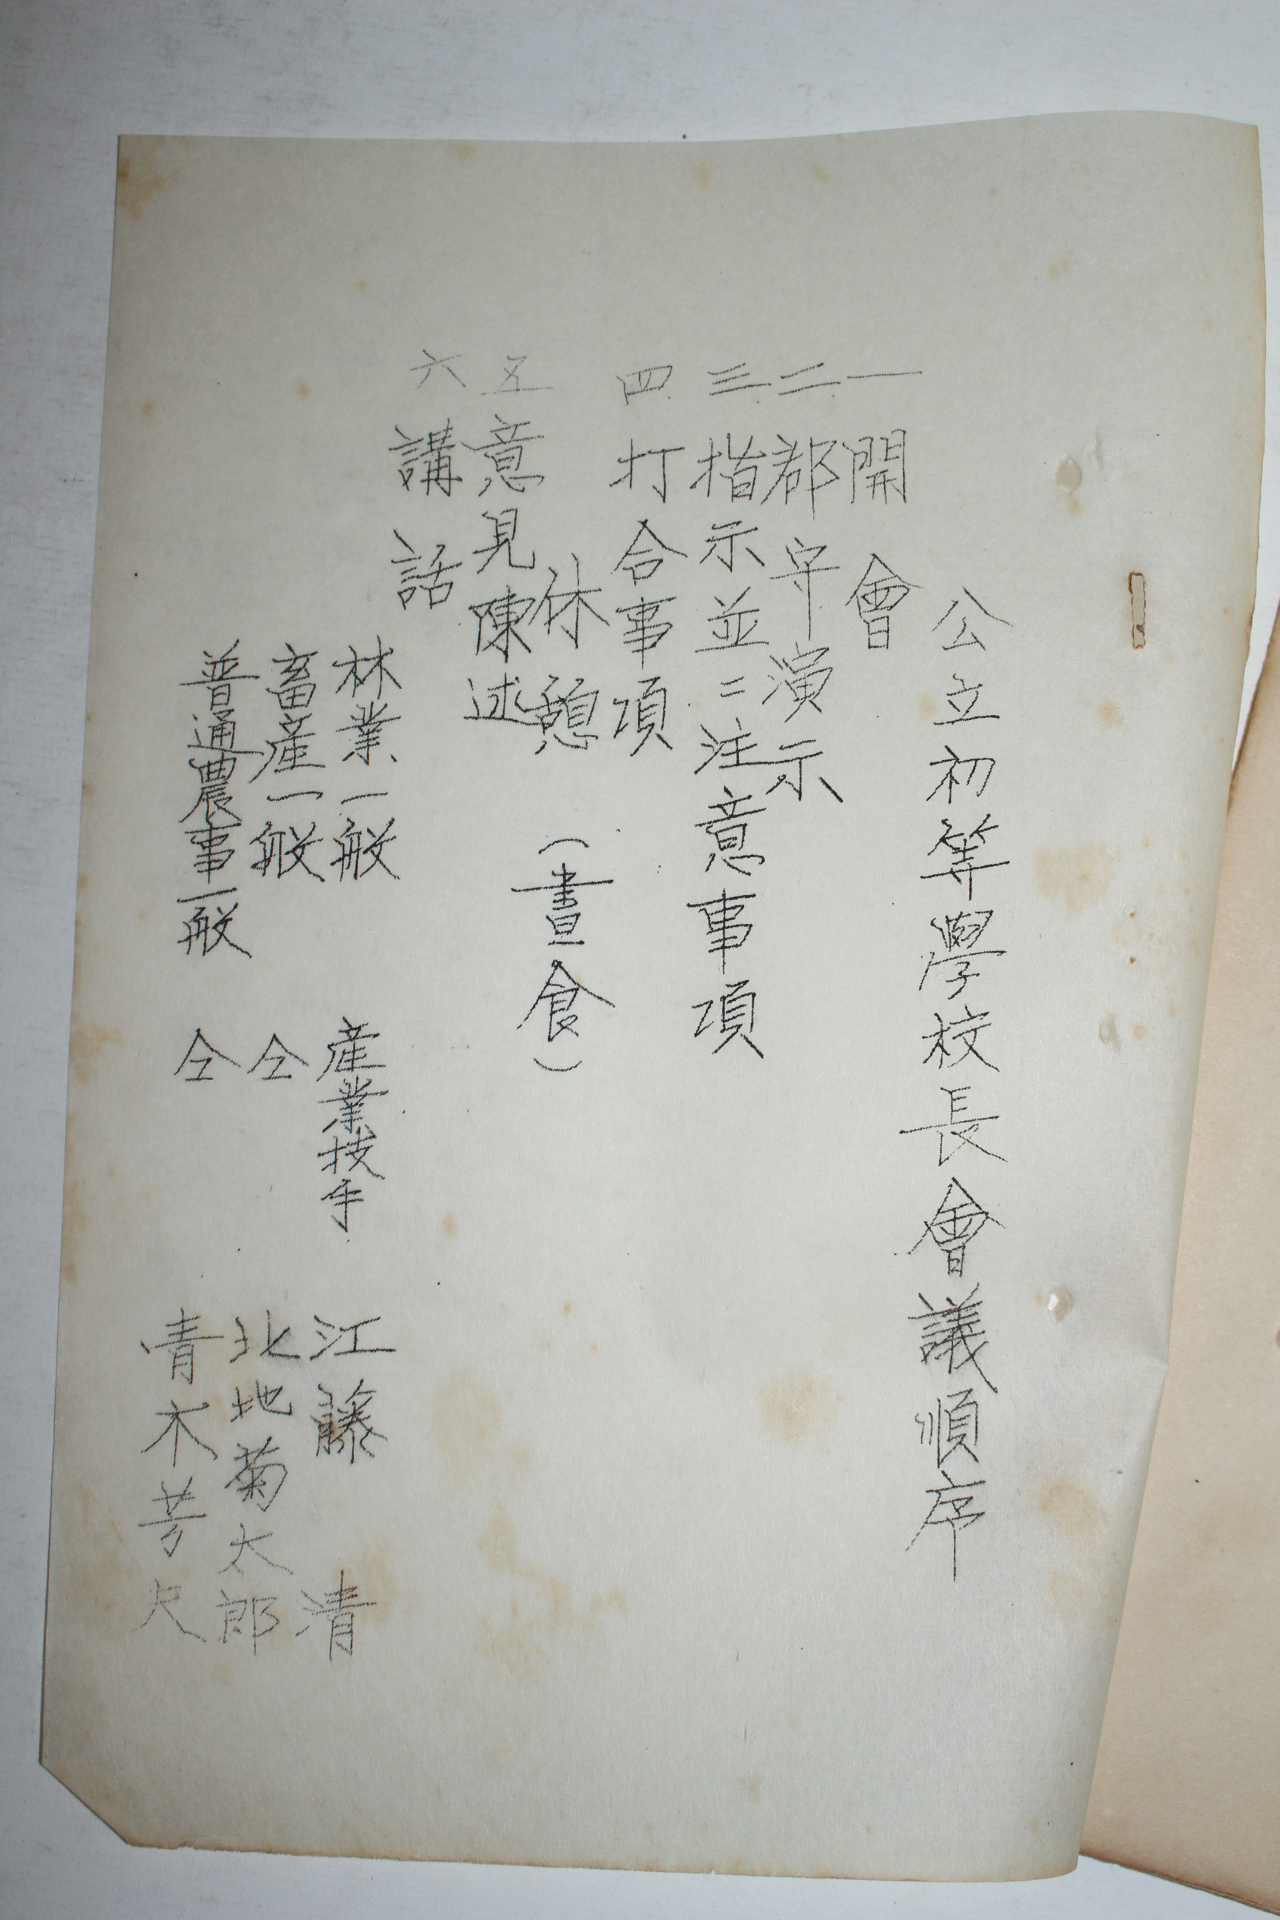 公立初等學校長會議順序
一 開會
二 郡守演示
三 指示並ニ注意事項
四 打合事項
休憩（晝食）
五 意見陳述
六 講話
林業一般 産業技手 江藤清
畜産一般 仝 北地菊太郎
普通農事一般 仝 青木芳尺